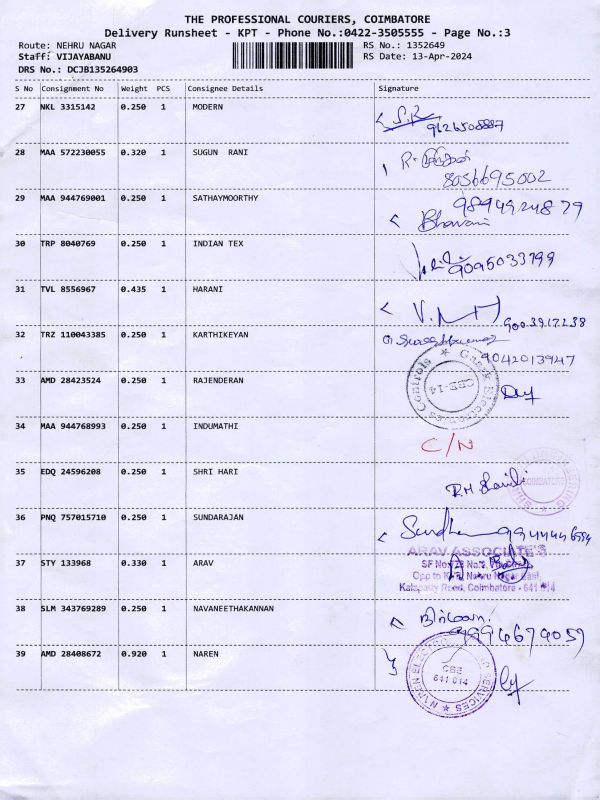 THE PROFESSIONAL COURIERS, COIMBATORE
Delivery Runsheet - KPT - Phone No.:0422-3505555 - Page No.:3
Route: NEHRU NAGAR RS No.: 1352649
Staff: VIJAYABANU RS Date: 13-Apr-2024
DRS No.: DCJB135264903
S No Consignment No Weight PCS Consignee Details Signature
27 NKL 3315142 0.250 1 MODERN
28 MAA 572230055 0.320 1 SUGUN RANI
8056695002
29 MAA 944769001 0.250 1 SATHAYMOORTHY
9894924879
Bhavani
30 TRP 8040769 0.250 1 INDIAN TEX
9095033799
31 TVL 8556967 0.435 1 HARANI
32 TRZ 110043385 0.250 1 KARTHIKEYAN
9042013947
33 AMD 28423524 0.250 1 RAJENDERAN
CBE-14
34 MAA 944768993 0.250 1 INDUMATHI
C/N
35 EDQ 24596208 0.250 1 SHRI HARI
COIMBATORE
36 PNQ 757015710 0.250 1 SUNDARAJAN
37 STY 133968 0.330 1 ARAV
ARAV ASSOCIATE'S
Kalapatty Road, Coimbatore - 641 014
38 SLM 343769289 0.250 1 NAVANEETHAKANNAN
9994679059
39 AMD 28408672 0.920 1 NAREN
NAREN ELECTRO SERVICES
CBE
641 014